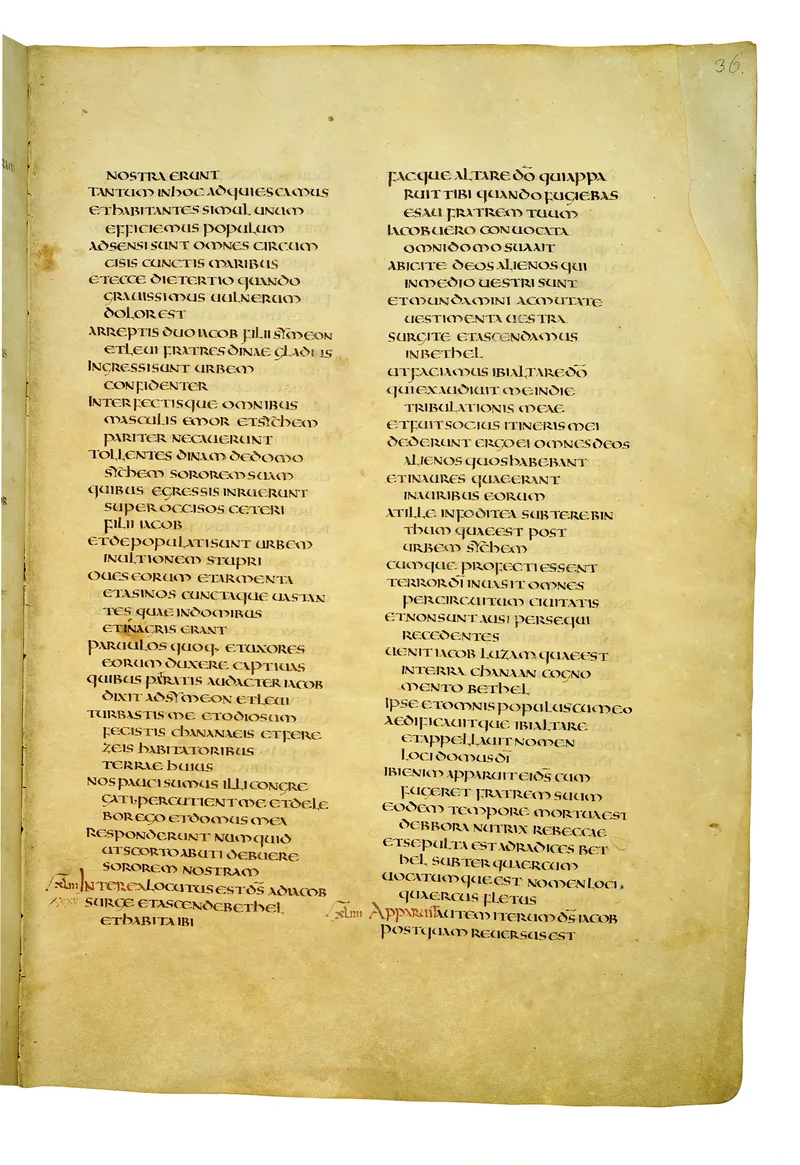 36.
NOSTRA ERUNT
TANTUM INHOC ADQUIESCAMUS
ETHABITANTES SIMUL UNUM
EFFICIEMUS POPULUM
ADSENSI SUNT OMNES CIRCUM
CISIS CUNCTIS MARIBUS
ETECCE DIETERTIO QUANDO
GRAUISSIMUS UULNERUM
DOLOREST
ARREPTIS DUOIACOB FILII SȲMEON
ETLEUI FRATRES DINAE GLADIIS
INGRESSISUNT URBEM
CONFIDENTER
INTERFECTISQUE OMNIBUS
MASCULIS EMOR ETSȲCHEM
PARITER NECAUERUNT
TOLLENTES DINAM DEDOMO
SȲCHEM SOROREMSUAM
QUIBUS EGRESSIS INRUERUNT
SUPER OCCISOS CETERI
FILII IACOB
ETDEPOPULATISUNT URBEM
INULTIONEM STUPRI
OUES EORUM ETARMENTA
ETASINOS CUNCTAQUE UASTAN
TES QUAE INDOMIBUS
ETINAGRIS ERANT
PARUULOS QUOQ· ETUXORES
EORUM DUXERE CAPTIUAS
QUIBUS PATRATIS AUDACTER IACOB
DIXIT ADSȲMEON ETLEUI
TURBASTIS ME ETODIOSUM
FECISTIS CHANANAEIS ETFERE
ZEIS HABITATORIBUS
TERRAE HUIUS
NOS PAUCI SUMUS ILLI CONGRE
GATI·PERCUTIENT ME ETDELE
BOR EGO ETDOMUS MEA
RESPONDERUNT NUMQUID
UTSCORTO ABUTI DEBUERE
SOROREM NOSTRAM
XLIII INTEREA LOCUTUS EST D̄S̄ ADIACOB
SURGE ETASCENDEBETHEL
ETHABITA IBI
FACQUE ALTARE D̄Ō QUIAPPA
RUIT TIBI QUANDO FUGIEBAS
ESAU FRATREM TUUM
IACOBUERO CONUOCATA
OMNIDOMO SUAAIT
ABICITE DEOS ALIENOS QUI
INMEDIO UESTRI SUNT
ETMUNDAMINI ACMUTATE
UESTIMENTA UESTRA
SURGITE ETASCENDAMUS
INBETHEL
UTFACIAMUS IBIALTARE D̄Ō
QUIEXAUDIUIT MEINDIE
TRIBULATIONIS MEAE
ETFUIT SOCIUS ITINERIS MEI
DEDERUNT ERGO EI OMNES DEOS
ALIENOS QUOSHABEBANT
ETINAURES QUAEERANT
INAURIBUS EORUM
ATILLE INFODITEA SUBTEREBIN
THUM QUAEEST POST
URBEM SȲCHEM
CUMQUE PROFECTI ESSENT
TERRORD̄Ī INUASIT OMNES
PERCIRCUITUM CIUITATIS
ETNONSUNT AUSI PERSEQUI
RECEDENTES
UENIT IACOB LUZAM QUAEEST
INTERRA CHANAAN COGNO
MENTO BETHEL
IPSE ETOMNIS POPULUS CUMEO
AEDIFICAUITQUE IBIALTARE
ETAPPELLAUIT NOMEN
LOCI DOMUS D̄Ī
IBIENIM APPARUIT EID̄S̄ CUM
FUGERET FRATREM SUUM
EODEM TEMPORE MORTUAEST
DEBBORA NUTRIX REBECCAE
ETSEPULTA EST ADRADICES BET
HEL SUBTER QUERCUM
UOCATUMQUE EST NOMEN LOCI·
QUAERCUS FLETUS
XLIIII APPARUIT AUTEM ITERUM D̄S̄ IACOB
POSTQUAM REUERSUS EST